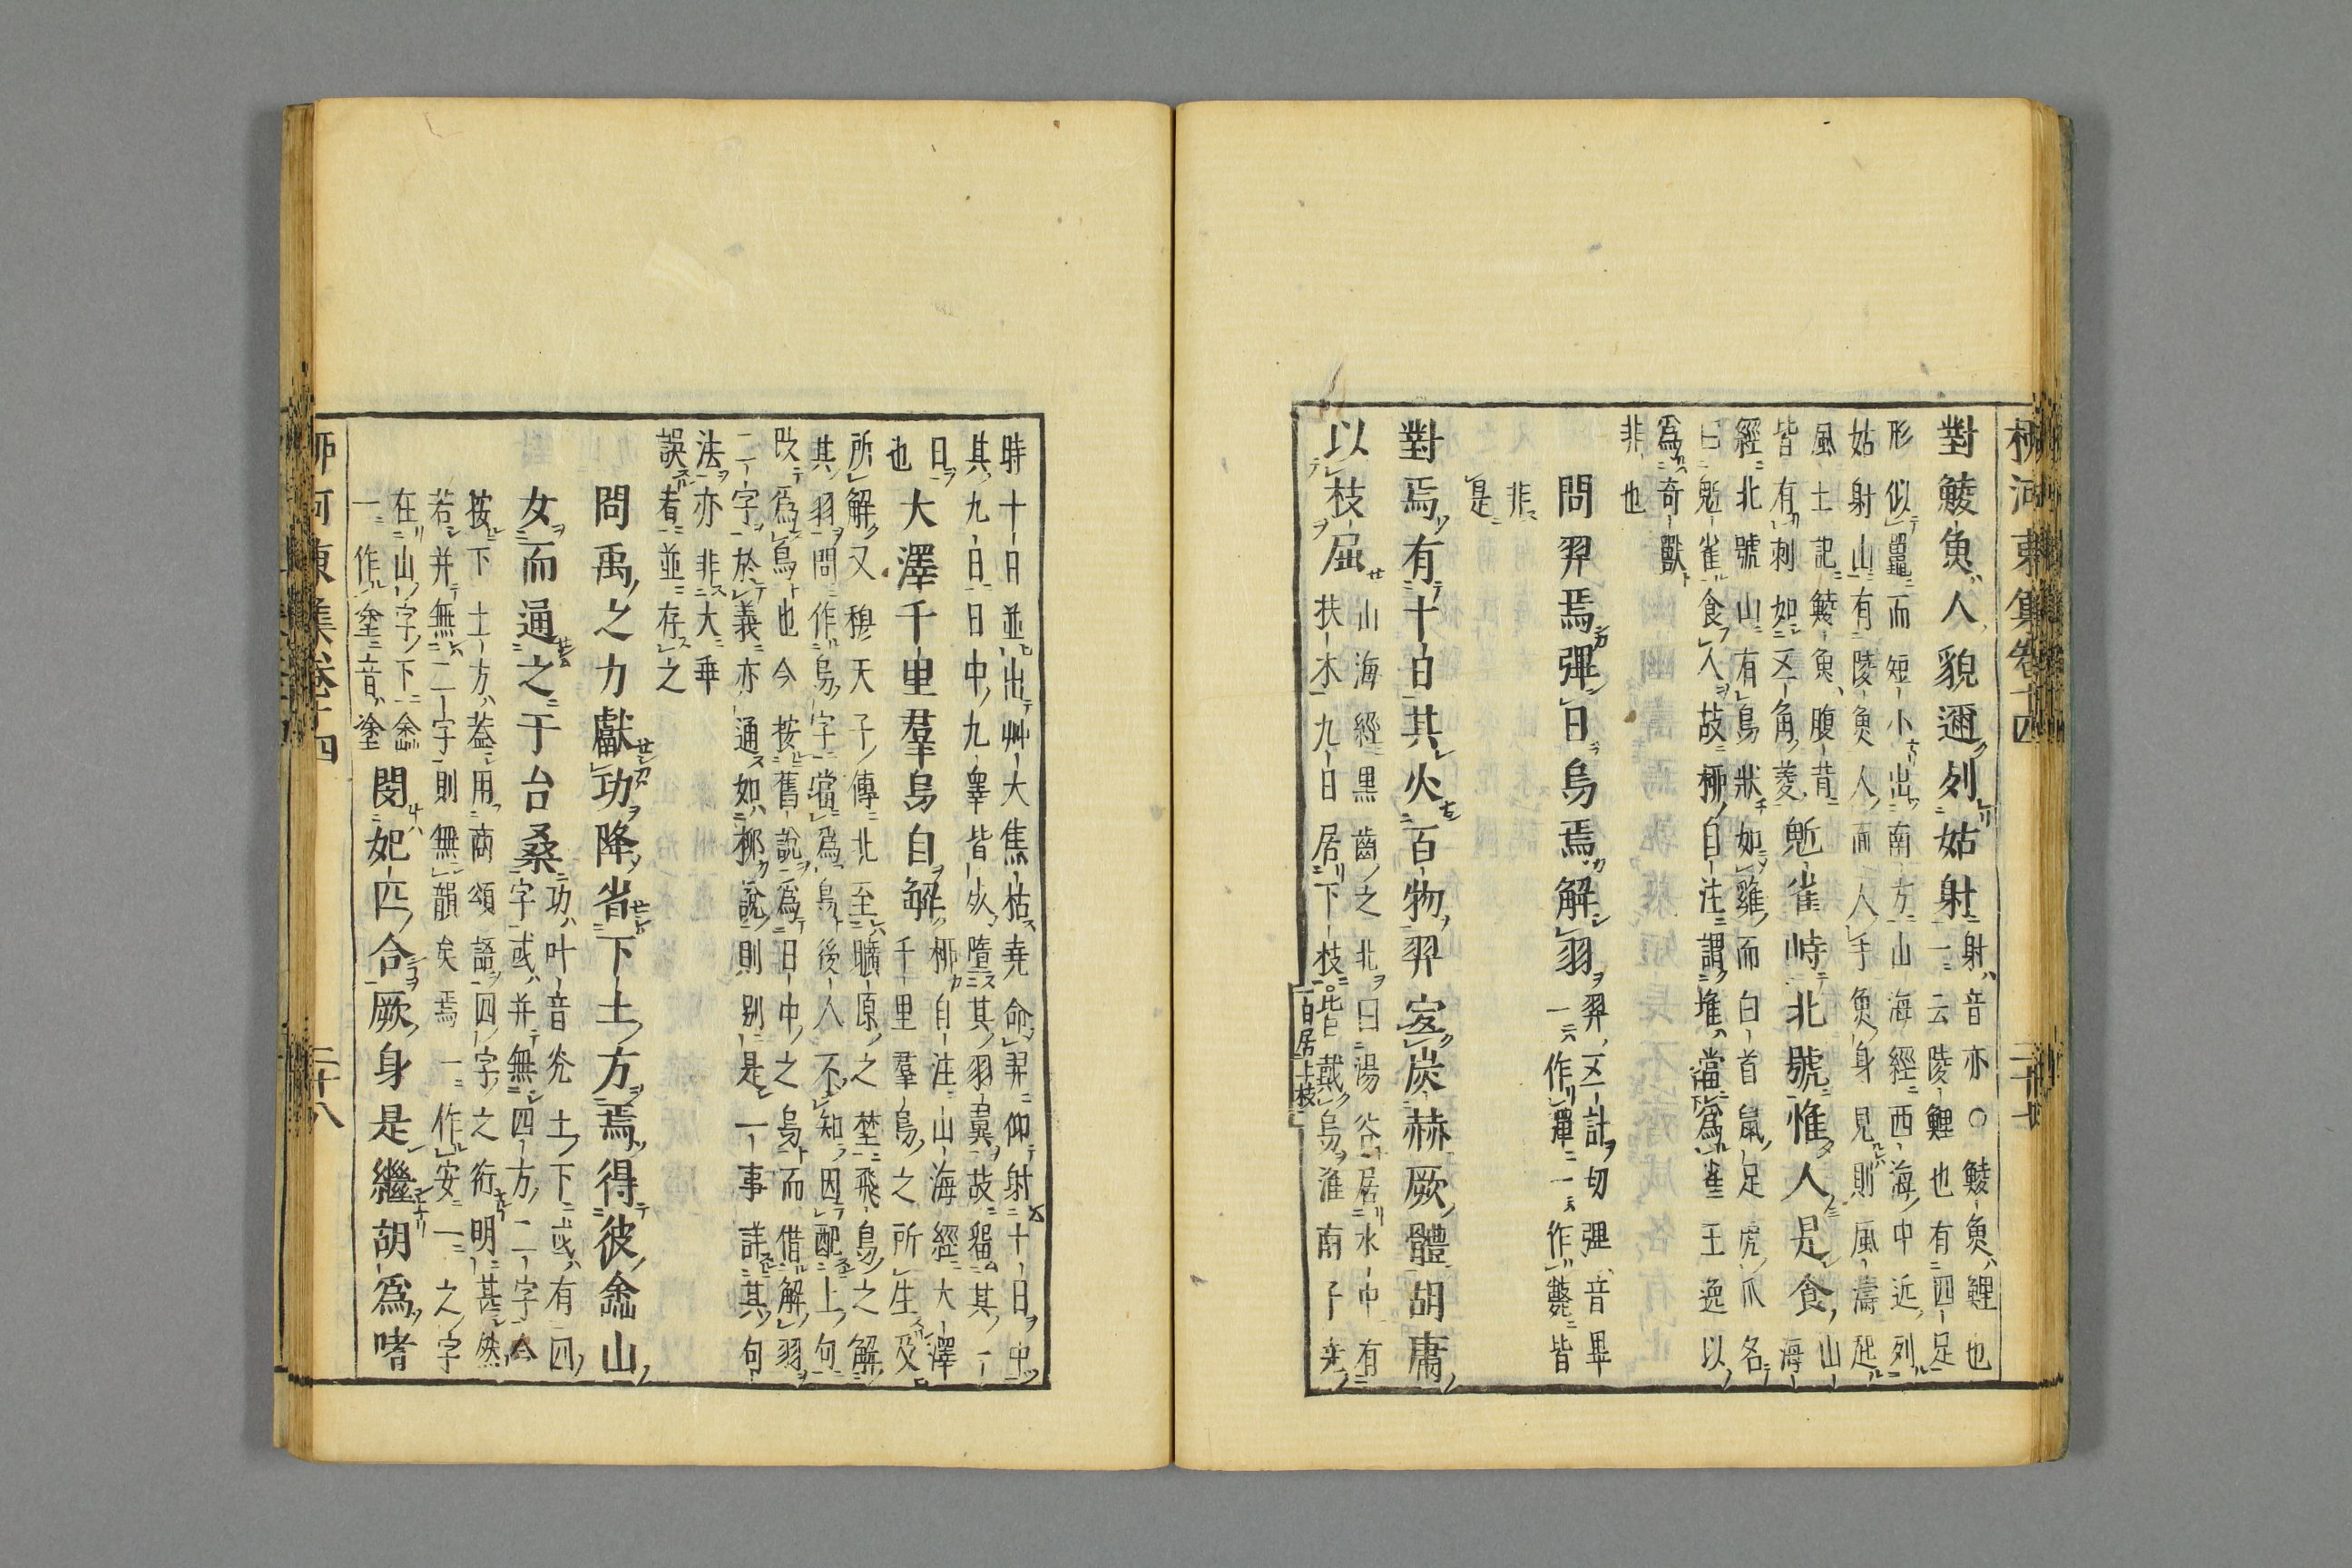 柳河東集卷十四
對鯪魚人貌邇列姑射射音亦○鯪魚鯉也
一云陵鯉也有四足
形似鼉而短小出南方山海經西海中近列
姑射山有陵魚人面人手魚身見則風濤起
風土記鯪魚腹背
皆有刺如五角菱鬿雀峙北號惟人是食山海
經北號山有鳥狀如雞而白首鼠足虎爪名
曰鬿雀食人故柳自注謂堆當爲雀王逸以
爲奇獸
非也
問羿焉彈日烏焉解羽羿五計切彈音畢
一云作彈一云作斃皆
非
是
對焉有十日其火百物羿宜炭赫厥體胡庸
以枝屈山海經黑齒之北曰湯谷居水中有
扶木九日居下枝一日居上枝皆戴烏淮南子堯
時十日並出艸木焦枯堯命羿仰射十日中
其九日日中九烏皆死墮其羽翼故留其一
日也大澤千里羣烏自解柳自注山海經大澤
千里羣鳥之所生及
所解又穆天子傳北至曠原之埜飛鳥之解
其羽問作烏字當爲鳥後人不知因配上句
改爲烏也今按舊說爲日中之烏而借解羽
二字於義亦通如柳說則別是一事詳其句
法亦非大乖
誤者並存之
問禹之力獻功降省下土方焉得彼嵞山
女而通之于台桑功叶音光土下或有四
字或并無四方二字今
按下土方蓋用商頌語四字之衍明甚然
若并無二字則無韻矣焉一作安一之字
在山字下嵞
一作塗音塗閔妃匹合厥身是繼胡爲嗜
柳河東集卷十四
二十八